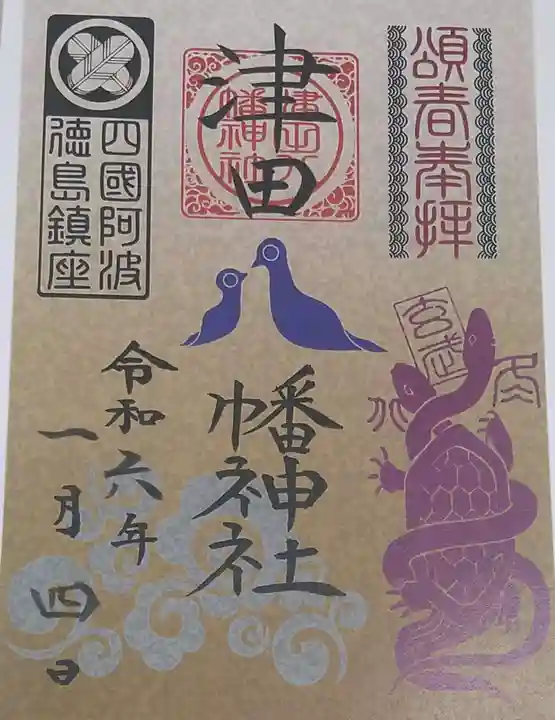 頌春奉拝
玄武
津田
八幡神社
四國阿波
徳島鎮座
令和六年
一月四日